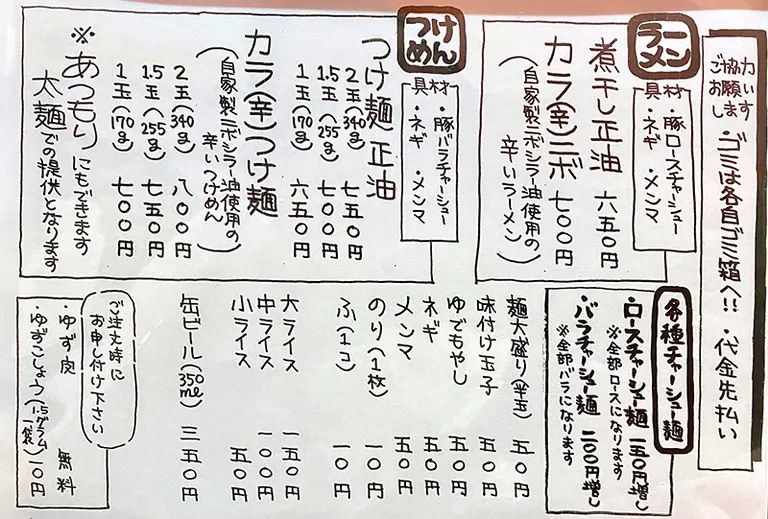 ご協力
お願いします
・ゴミは各自ゴミ箱へ!!・代金先払い
ラーメン
具材
・豚ロースチャーシュー
・ネギ・メンマ
煮干し正油 六五〇円
カラ(辛)ニボ 七〇〇円
(自家製ニボシラー油使用の
辛いラーメン)
つけめん
具材
・豚バラチャーシュー
・ネギ・メンマ
つけ麺 正油
2玉(340g) 七五〇円
1.5玉(255g) 七〇〇円
1玉(170g) 六五〇円
カラ(辛)つけ麺
(自家製ニボシラー油使用の
辛いつけめん)
2玉(340g) 八〇〇円
1.5玉(255g) 七五〇円
1玉(170g) 七〇〇円
※あつもりにもできます
太麺での提供となります
各種チャーシュー麺
・ロースチャーシュー麺 一五〇円増し
※全部ロースになります
・バラチャーシュー麺 二〇〇円増し
※全部バラになります
麺大盛り(半玉) 五〇円
味付け玉子 五〇円
ゆでもやし 五〇円
ネギ 五〇円
メンマ 五〇円
のり(1枚) 一〇円
ふ(1コ) 一〇円
大ライス 一五〇円
中ライス 一〇〇円
小ライス 五〇円
缶ビール(350ml) 三五〇円
ご注文時に
お申し付け下さい
・ゆず皮 無料
・ゆずこしょう(1.5グラム一袋) 一〇円